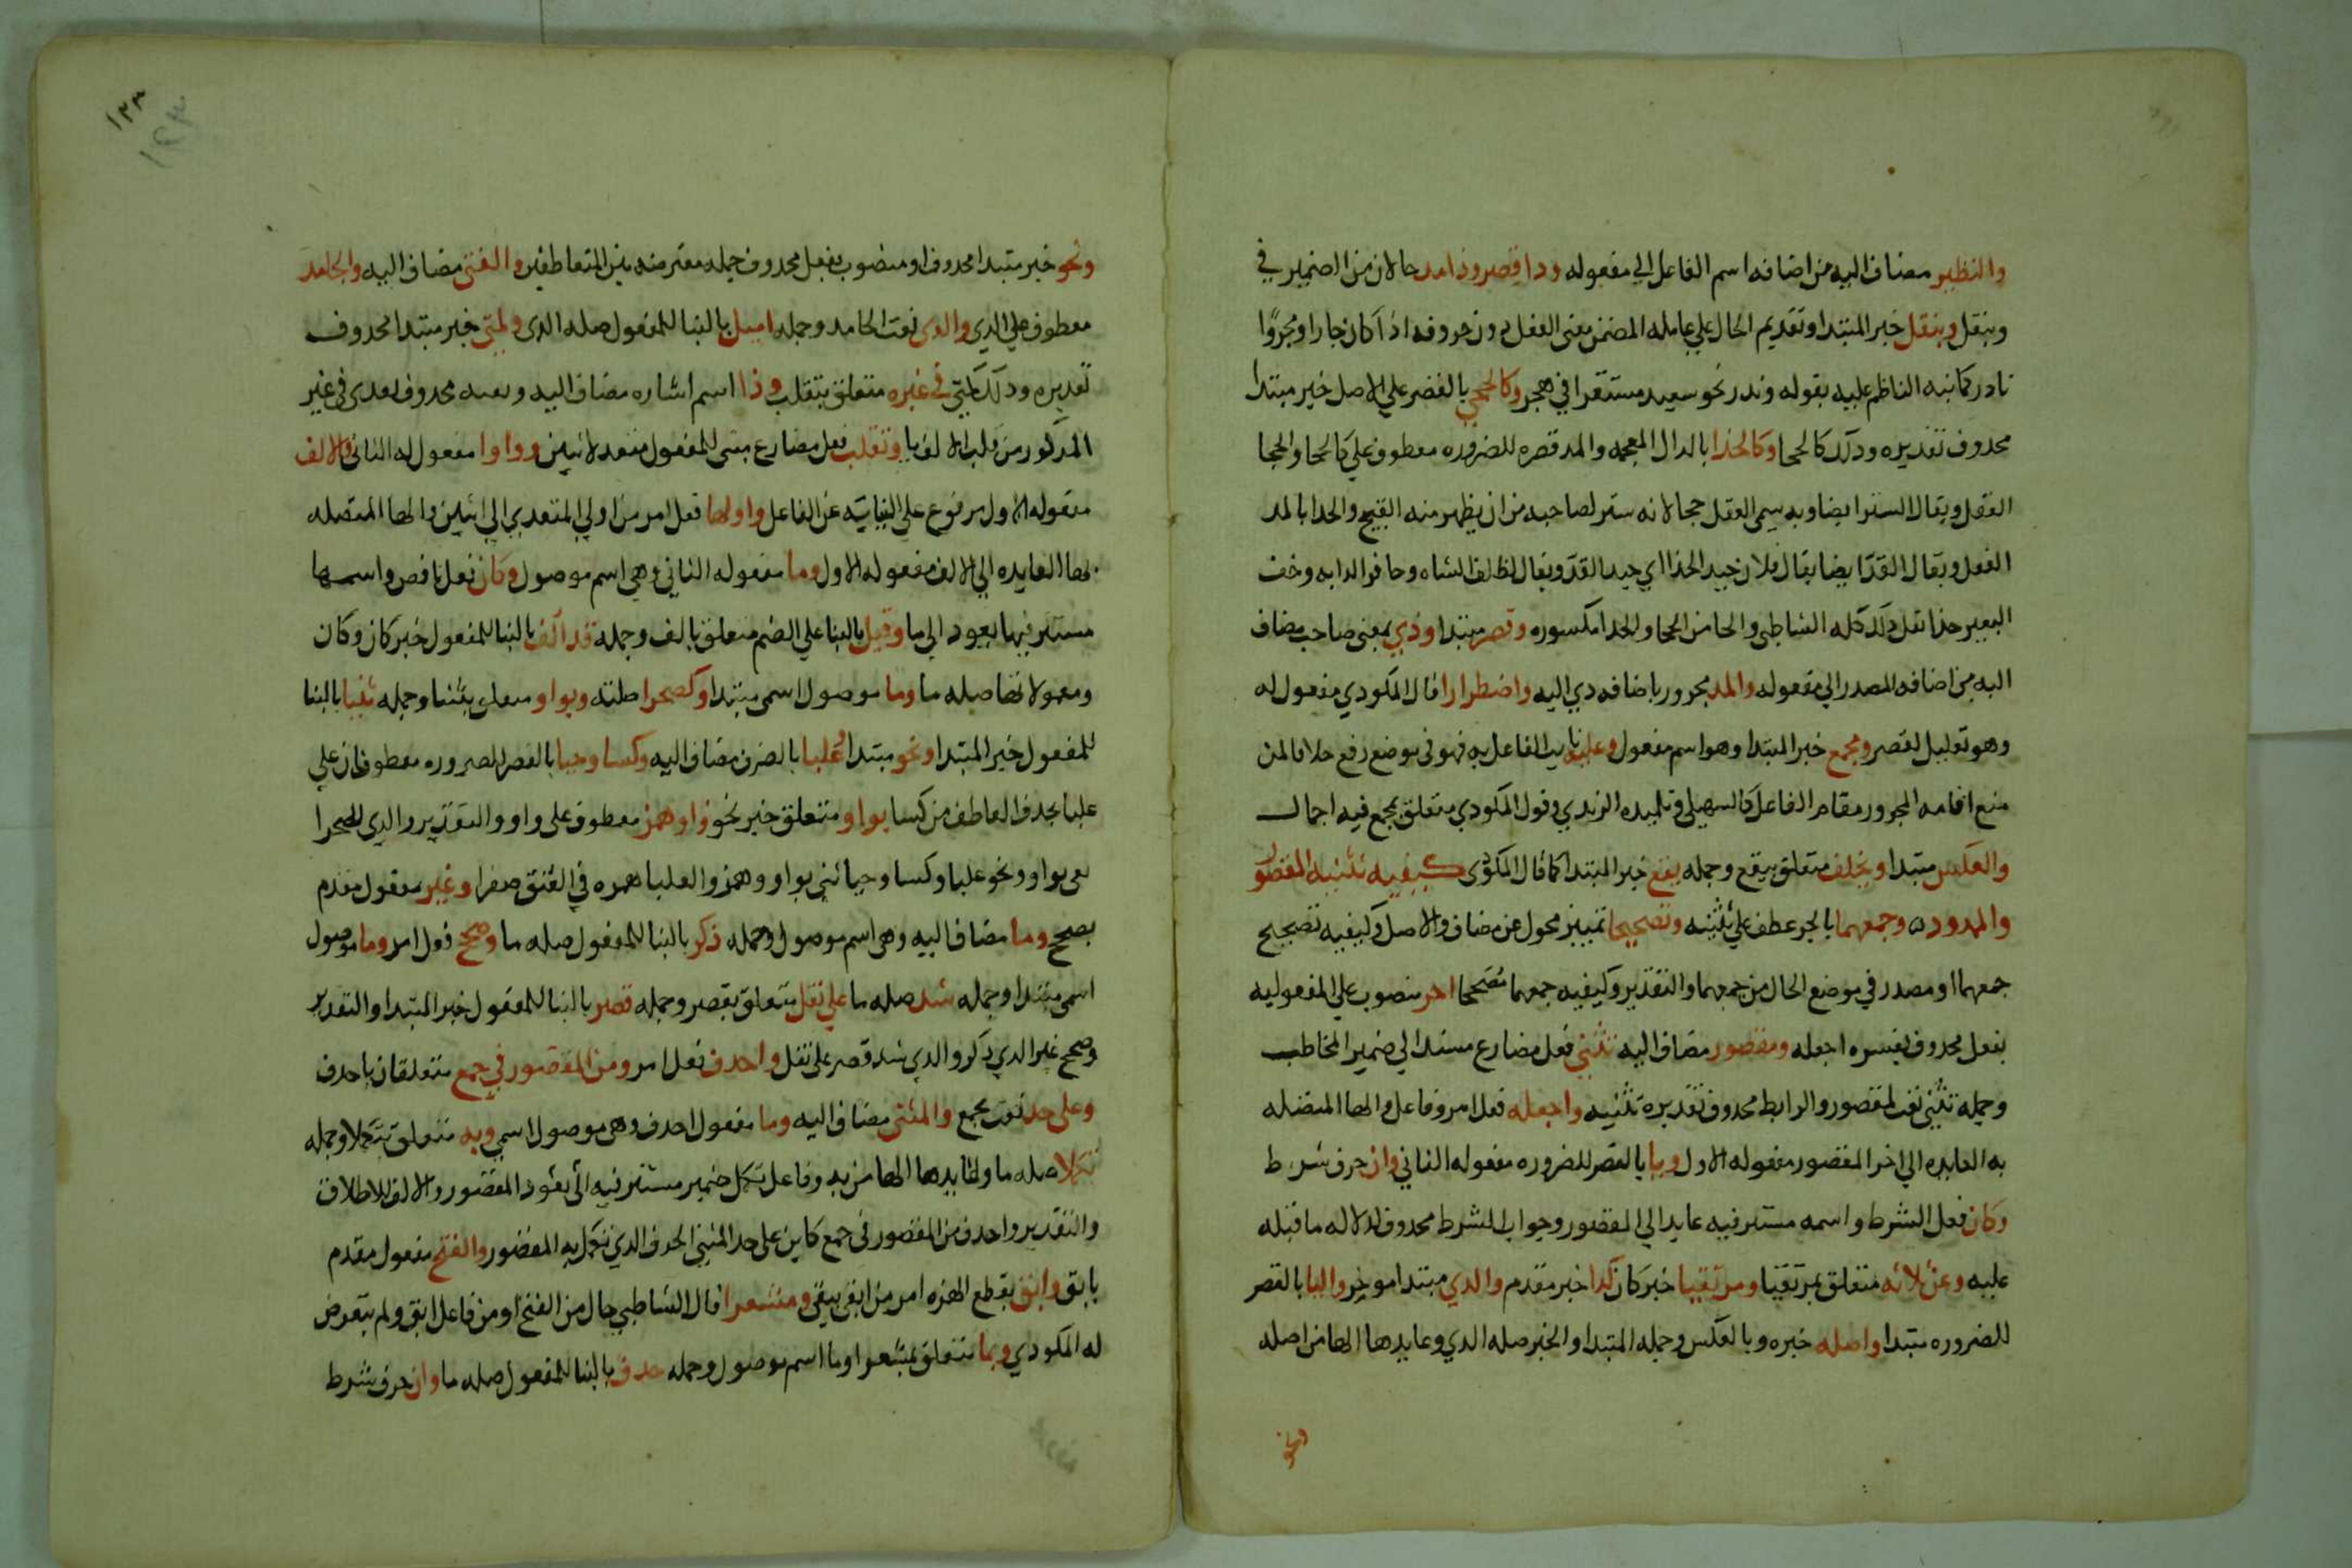 والنظير مضاف اليه من اضافه اسم الفاعل الي مفعوله وذا قصر وذا مد حالان من الضمير في
وبنقل وبنقل خبر المبتدا وتقديم الحال علي عامله المضمن معنى الفعل دون حروفه اذا كان جارا ومجرورا
نادر كما نبه الناظم عليه بقوله وندر نحو سعيد مستقرا في هجر وكالحجي بالقصر علي الاصل خبر مبتدا
محدوف تقديره ودلك كالحجا وكالحذا بالدال المعجمه والمد قصره للضروره معطوف علي كالحجا والحجا
العقل ويقال الستر ايضا وبه سمى العقل حجا لانه ستر لصاحبه من ان يظهر منه القبيح والحدا بالمد
النعل ويقال القد ايضا يقال فلان جيد الحذا اي جيد القد ويقال لظلف الشاه وحافر الدابه وخف
البعير حذا نقل دلك كله الشاطبى والحا من الحجا والحدا مكسوره وقصر مبتدا وذي بمعنى صاحب مضاف
اليه من اضافه المصدر الي مفعوله والمد مجرور باضافه دي اليه واضطرارا قال المكودي مفعول له
وهو تعليل لقصر ومجمع خبر المبتدا وهو اسم مفعول وعليه نايب الفاعل به فهو فى موضع رفع خلافا لمن
منع اقامه المجرور مقام الفاعل كالسهيلي وتلميده الرندي وقول المكودي متعلق بمجمع فيه اجمال
والعكس مبتدا وبخلف متعلق بيقع وجمله يقع خبر المبتدا كما قال المكودى كيفيه تثنيه المقصور
والممدود وجمعهما بالجر عطف علي تثنيه وتصحيحا تمييز محول عن مضاف والاصل وكيفيه تصحيح
جمعهما او مصدر في موضع الحال من جمعهما والتقدير وكيفيه جمعهما مصححا اخر منصوب علي المفعوليه
بفعل محدوف يفسره اجعله ومقصور مضاف اليه تثنى فعل مضارع مسند الي ضمير المخاطب
وجمله تثنى نعت لمقصور والرابط محدوف تقديره تثنيه واجعله فعل امر وفاعل والها المتصله
به العايده الي اخر المقصور مفعوله الاول ويا بالقصر للضروره مفعوله الثاني وان حرف شرط
وكان فعل الشرط واسمه مستتر فيه عايد الي المقصور وجواب الشرط محدوف لدلاله ما قبله
عليه وعن ثلاثه متعلق بمرتقيا ومرتقيا خبر كان كدا خبر مقدم والدي مبتدا موخر واليا بالقصر
للضروره مبتدا واصله خبره وبالعكس وجمله المبتدا والخبر صله الدي وعايدها الها من اصله
١٢٣
١٢٣
ونحو خبر مبتدا محدوف او منصوب بفعل محدوف جمله معترضه بين المتعاطفين والفتى مضاف اليه والجامد
معطوف علي الدي والدى نعت الجامد وجمله اميل بالبنا للمفعول صله الدى ولمتى خبر مبتدا محدوف
تقديره ودلك كمتى في غيره متعلق بتقلب وذا اسم اشاره مضاف اليه ونعته محدوف اعدى فى غير
المدكور من قلب الالف يا وتقلب فعل مضارع مبنى للمفعول متعد لاثنين وواوا مفعوله الثانى والالف
مفعوله الاول مرفوع علي النيابه عن الفاعل واولها فعل امر من اولي المتعدي الي اثنين والها المتصله
بها العايده الي الالف مفعوله الاول وما مفعوله الثاني وهي اسم موصول وكان فعل ناقص واسمها
مستتر فيها يعود الي ما وقبل بالبنا علي الضم متعلق بالف وجمله قد الف بالبنا للمفعول خبر كان وكان
ومعمولاها صله ما وما موصول اسمى مبتدا وكصحرا صلته وبواو متعلق بثنيا وجمله ثنيا بالبنا
للمفعول خبر المبتدا ونحو مبتدا وعلبا بالصرف مضاف اليه وكسا وحيا بالقصر للضروره معطوفان علي
علبا بحدف العاطف من كسا بواو متعلق خبر نحو واو همز معطوف على واو والتقدير والدي كصحرا
ثنى بواو ونحو علبا وكسا وحيا ثني بواو وهمز والعلبا همزه في العنق صفرا وغير مفعول مقدم
بصحح وما مضاف اليه وهى اسم موصول وجمله ذكر بالبنا للمفعول صله ما وصحح فعل امر وما موصول
اسمى مبتدا وجمله شد صله ما علي نقل متعلق بقصر وجمله قصر بالبنا للمفعول خبر المبتدا والتقدير
وصحح غير الدي دكر والدي شد قصر على نقل واحدف فعل امر ومن المقصور في جمع متعلقان باحدف
وعلى حد نعت لجمع والمثنى مضاف اليه وما مفعول احدف وهى موصول اسمي وبه متعلق بتكملا وجمله
تكملا صله ما والعايد ها الها من به وفاعل تكمل ضمير مستتر فيه الى يعود المقصور والالف للاطلاق
والتقدير واحدف من المقصور فى جمع كاين على حد المثنى الحرف الدي تكمل به المقصور والفتح مفعول مقدم
بابق وابق بقطع الهمزه امر من ابقى يبقى ومشعرا قال الشاطبي حال من الفتح او من فاعل ابق ولم يتعرض
له المكودي وبما متعلق بمشعرا وما اسم موصول وجمله حدف بالبنا للمفعول صله ما وان حرف شرط